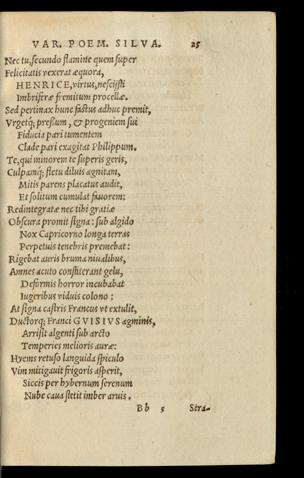 VAR. POEM. SILVA. 25
Nec tu, secundo flamine quem super
Felicitatis vexerat æquora,
HENRICE, virtus, nescijsti
Imbriferæ fremitum procellæ.
Sed pertinax hunc fastus adhuc premit,
Vrgetq́; pressum, & progeniem sui
Fiducia pari tumentem
Clade pari exagitat Philippum.
Te, qui minorem te superis geris,
Culpamq́; fletu diluis agnitam,
Mitis parens placatus audit,
Et solitum cumulat fauorem:
Redintegratæ nec tibi gratiæ
Obscura promit signa: sub algido
Nox Capricorno longa terras
Perpetuis tenebris premebat:
Rigebat auris bruma niualibus,
Amnes acuto constiterant gelu,
Deformis horror incubabat
Iugeribus viduis colono:
At signa castris Francus vt extulit,
Ductorq́; Franci GVISIVS agminis,
Arrisit algenti sub arcto
Temperies melioris auræ:
Hyems retuso languida spiculo
Vim mitigauit frigoris asperi,
Siccis per hybernum serenum
Nube caua stetit imber aruis.
Bb 5 Stra-